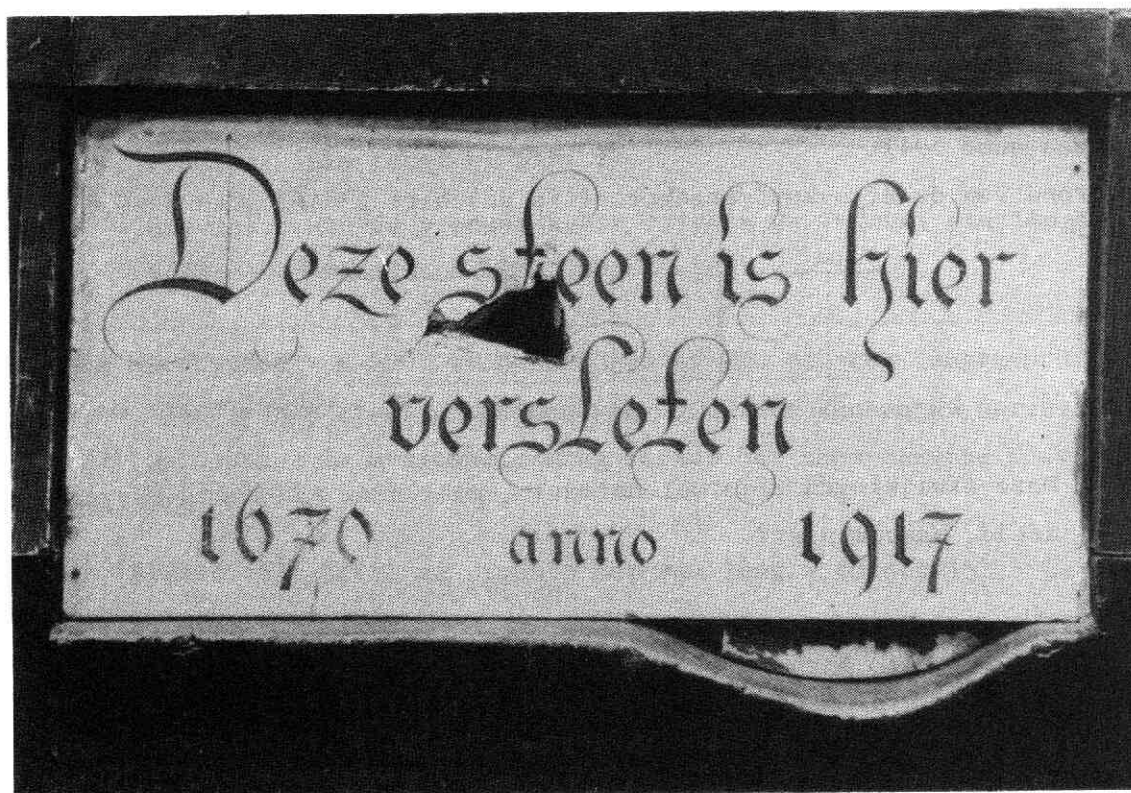 Deze steen is hier
versleten
1670 anno 1917